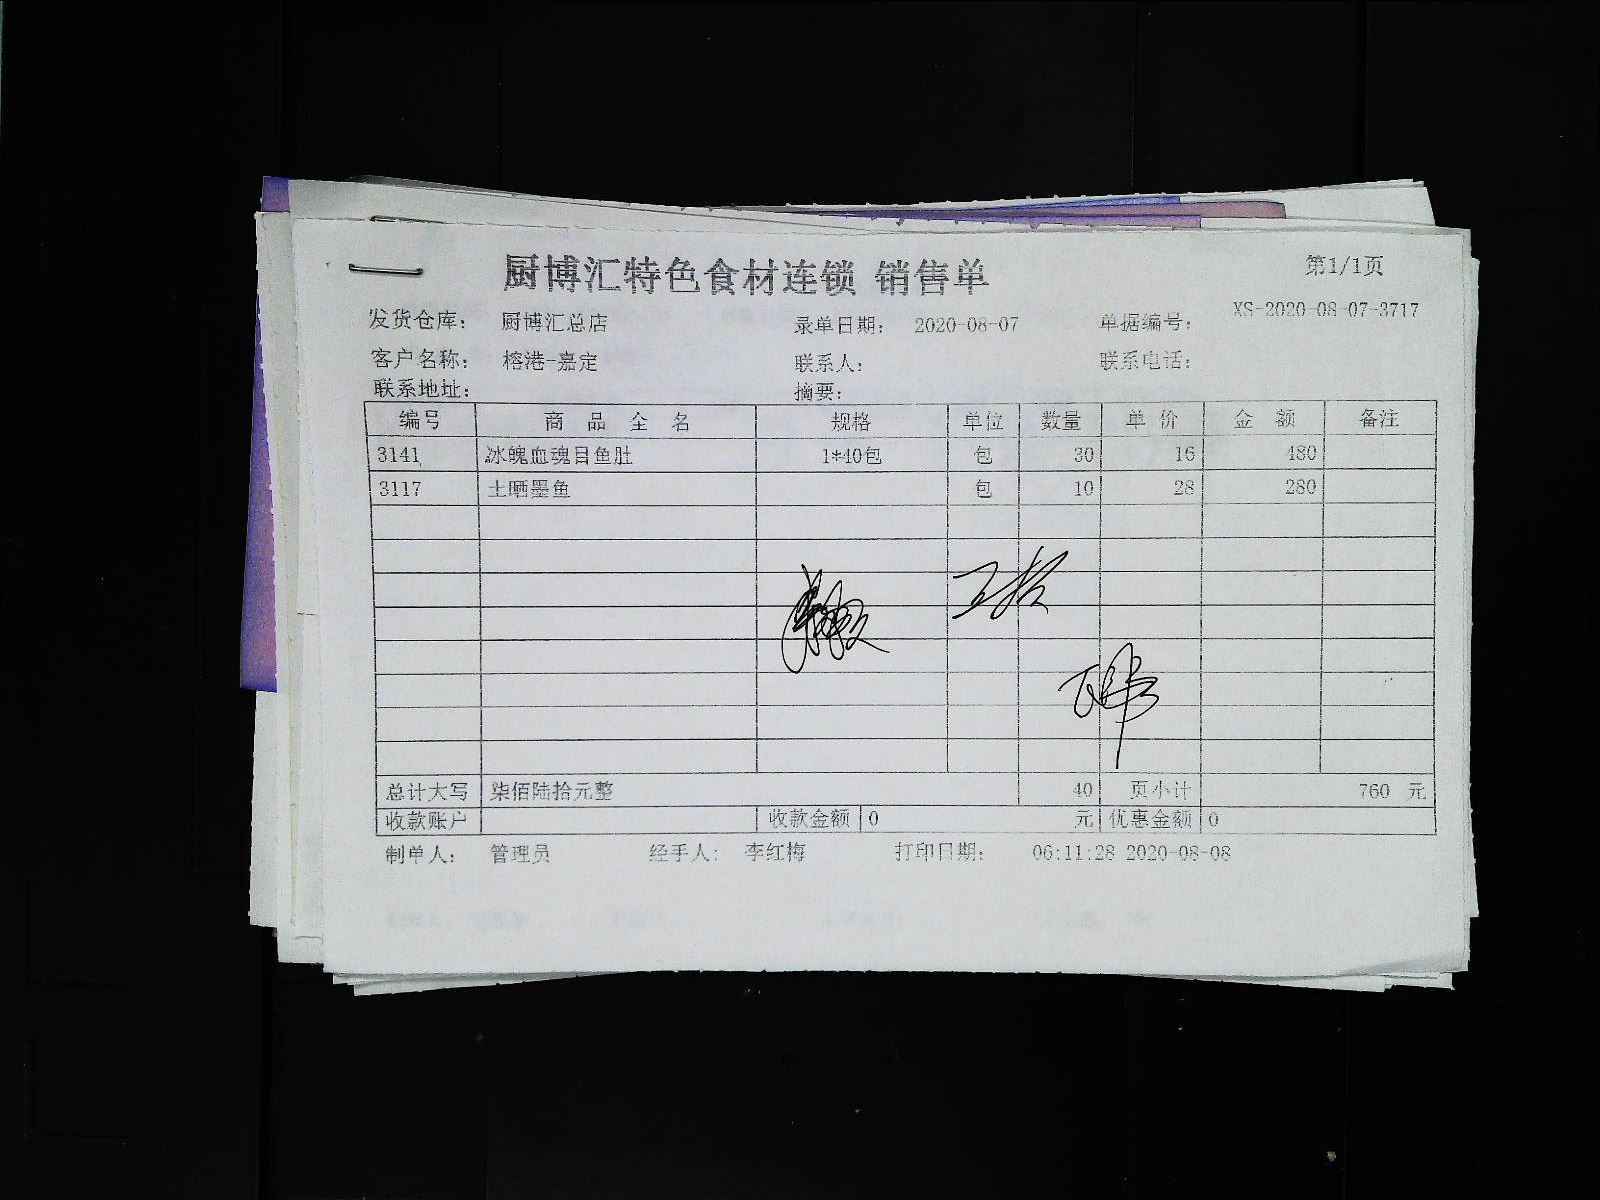 厨博汇特色食材连锁 销售单
第1/1页
发货仓库： 厨博汇总店 录单日期： 2020-08-07 单据编号： XS-2020-08-07-3717
客户名称： 榕港-嘉定 联系人： 联系电话：
联系地址： 摘要：
编号 商品全名 规格 单位 数量 单价 金额 备注
3141 冰魄血魂目鱼肚 1*40包 包 30 16 480
3117 土晒墨鱼 包 10 28 280
总计大写 柒佰陆拾元整 40 页小计 760 元
收款账户 收款金额 0 元 优惠金额 0
制单人： 管理员 经手人： 李红梅 打印日期： 06:11:28 2020-08-08